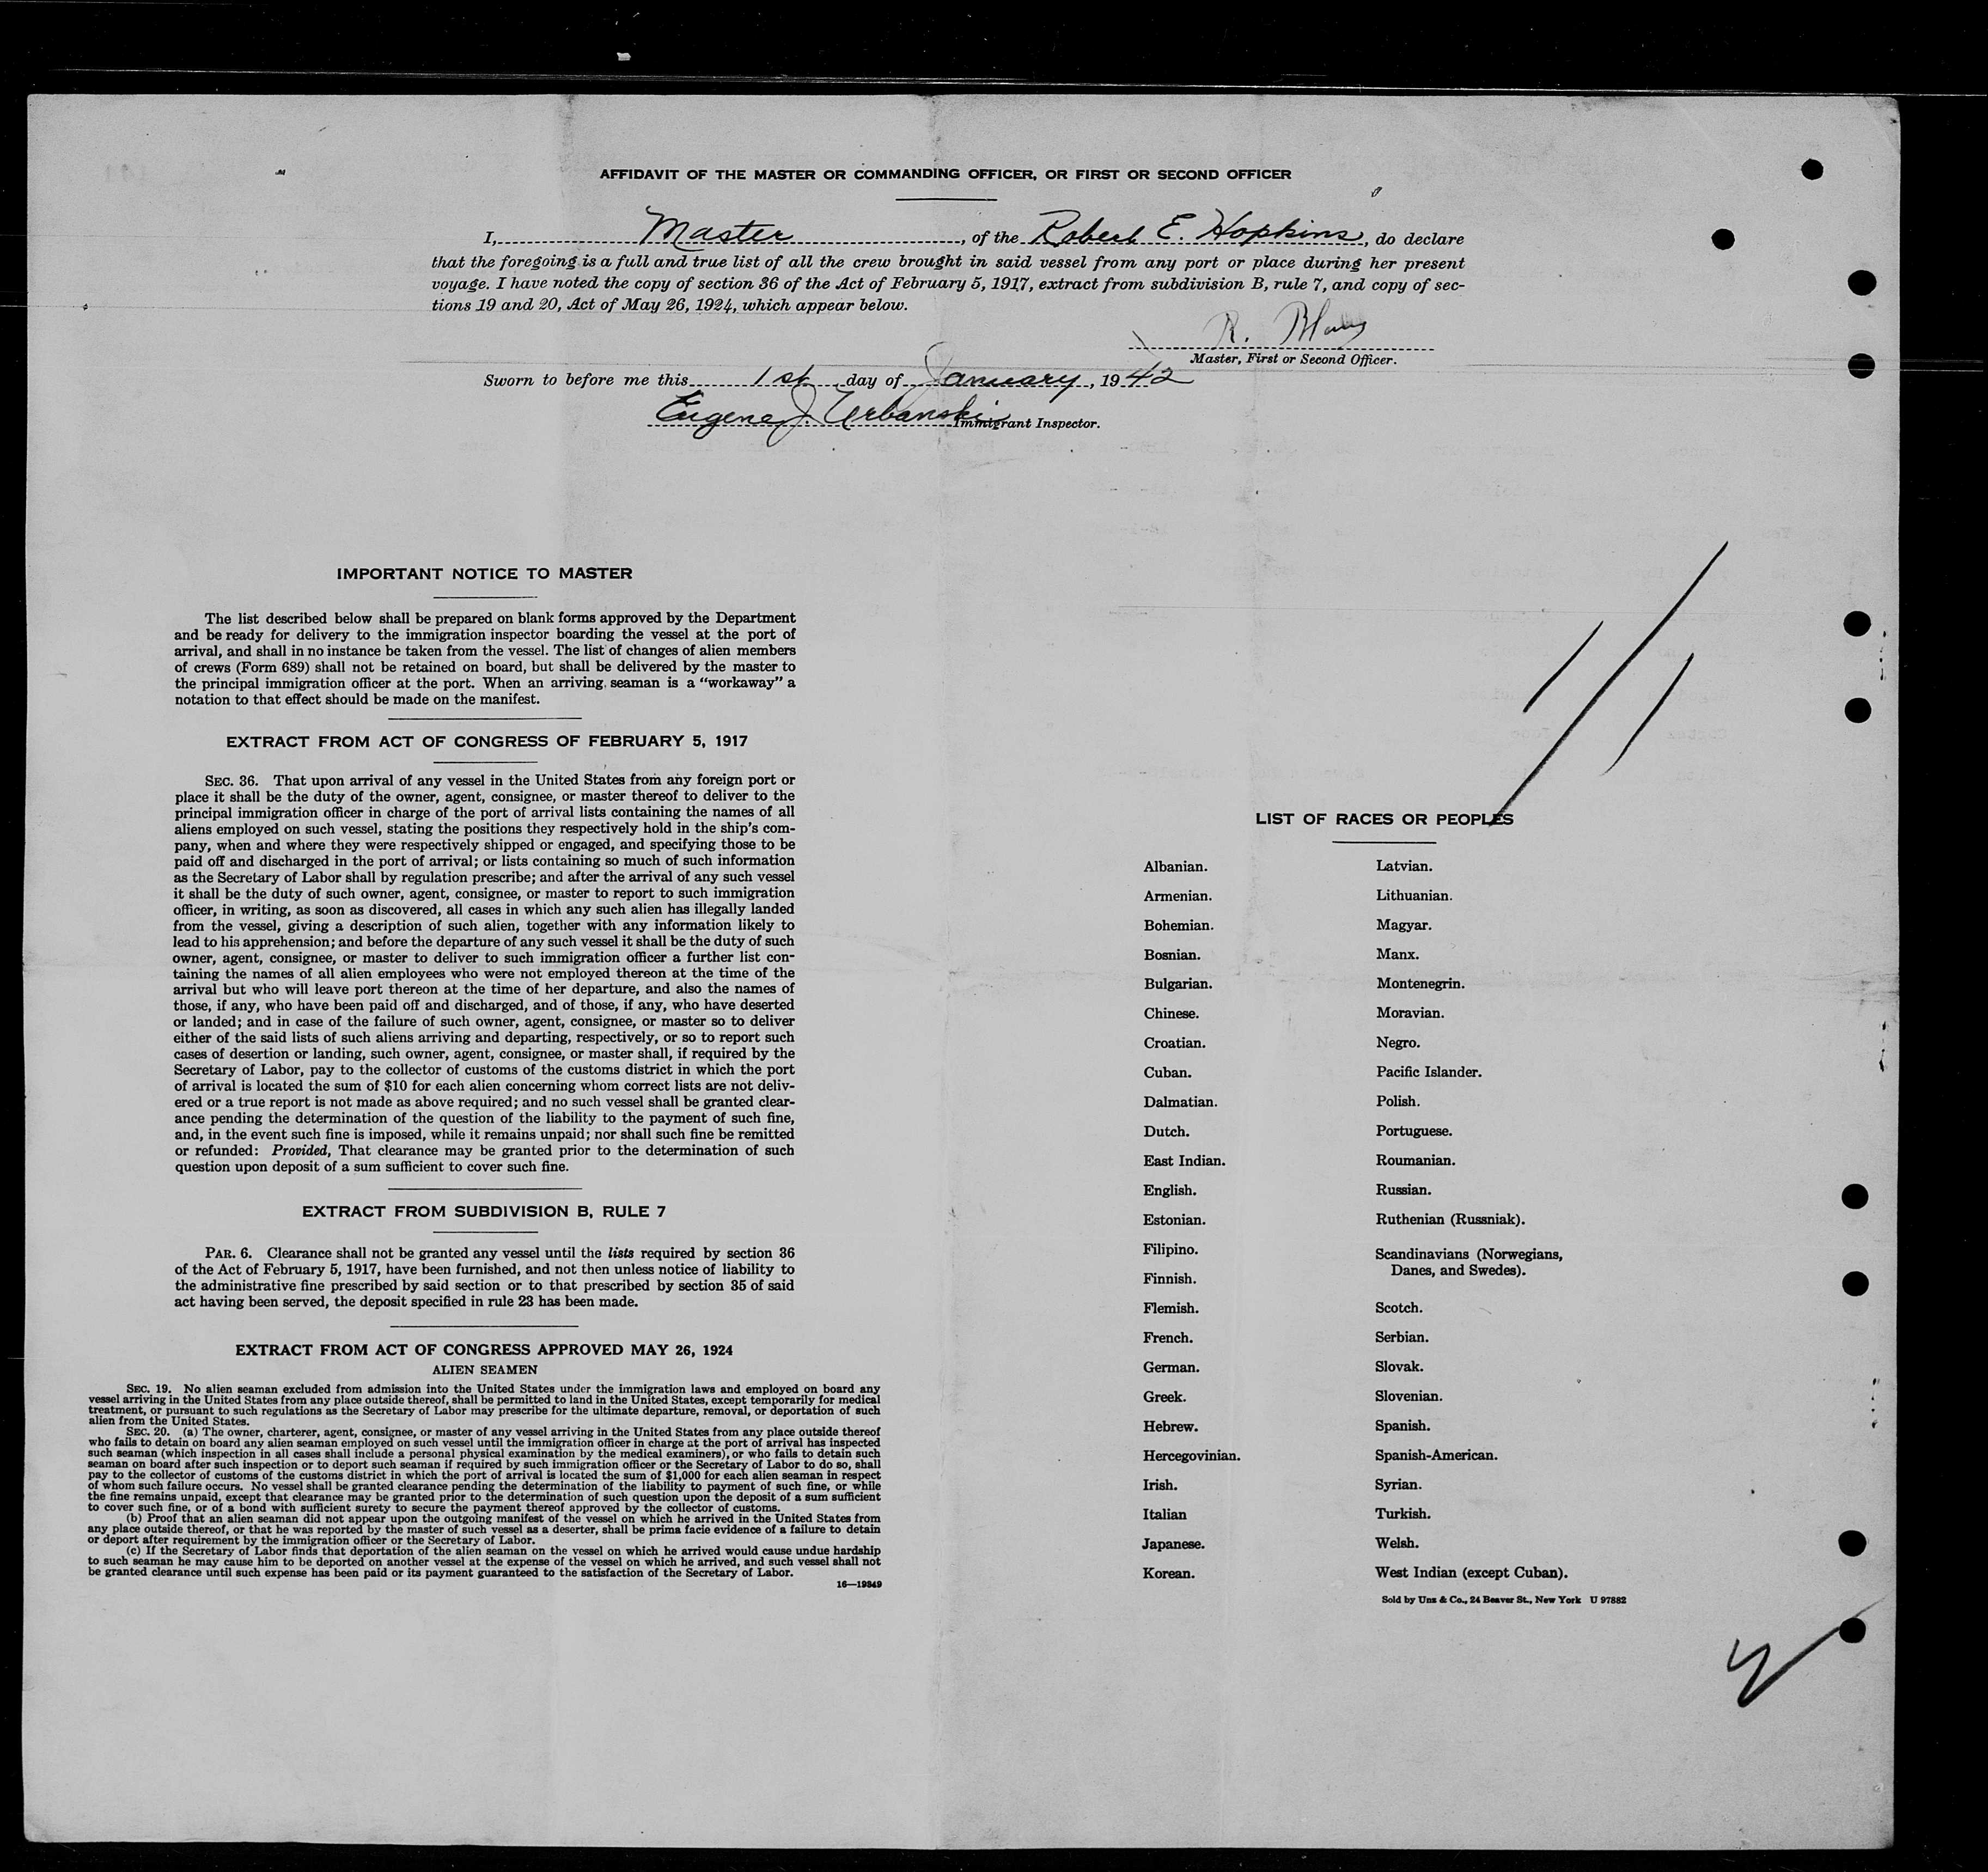 AFFIDAVIT OF THE MASTER OR COMMANDING OFFICER, OR FIRST OR SECOND OFFICER
I, Master, of the Robert E. Hopkins, do declare
that the foregoing is a full and true list of all the crew brought in said vessel from any port or place during her present
voyage. I have noted the copy of section 36 of the Act of February 5, 1917, extract from subdivision B, rule 7, and copy of sec-
tions 19 and 20, Act of May 26, 1924, which appear below.
R.
Master, First or Second Officer.
Sworn to before me this 1st day of January, 1942
Eugene J. Urbanski
Immigrant Inspector.
IMPORTANT NOTICE TO MASTER
The list described below shall be prepared on blank forms approved by the Department
and be ready for delivery to the immigration inspector boarding the vessel at the port of
arrival, and shall in no instance be taken from the vessel. The list of changes of alien members
of crews (Form 689) shall not be retained on board, but shall be delivered by the master to
the principal immigration officer at the port. When an arriving seaman is a "workaway" a
notation to that effect should be made on the manifest.
EXTRACT FROM ACT OF CONGRESS OF FEBRUARY 5, 1917
SEC. 36. That upon arrival of any vessel in the United States from any foreign port or
place it shall be the duty of the owner, agent, consignee, or master thereof to deliver to the
principal immigration officer in charge of the port of arrival lists containing the names of all
aliens employed on such vessel, stating the positions they respectively hold in the ship's com-
pany, when and where they were respectively shipped or engaged, and specifying those to be
paid off and discharged in the port of arrival; or lists containing so much of such information
as the Secretary of Labor shall by regulation prescribe; and after the arrival of any such vessel
it shall be the duty of such owner, agent, consignee, or master to report to such immigration
officer, in writing, as soon as discovered, all cases in which any such alien has illegally landed
from the vessel, giving a description of such alien, together with any information likely to
lead to his apprehension; and before the departure of any such vessel it shall be the duty of such
owner, agent, consignee, or master to deliver to such immigration officer a further list con-
taining the names of all alien employees who were not employed thereon at the time of the
arrival but who will leave port thereon at the time of her departure, and also the names of
those, if any, who have been paid off and discharged, and of those, if any, who have deserted
or landed; and in case of the failure of such owner, agent, consignee, or master so to deliver
either of the said lists of such aliens arriving and departing, respectively, or so to report such
cases of desertion or landing, such owner, agent, consignee, or master shall, if required by the
Secretary of Labor, pay to the collector of customs of the customs district in which the port
of arrival is located the sum of $10 for each alien concerning whom correct lists are not deliv-
ered or a true report is not made as above required; and no such vessel shall be granted clear-
ance pending the determination of the question of the liability to the payment of such fine,
and, in the event such fine is imposed, while it remains unpaid; nor shall such fine be remitted
or refunded: Provided, That clearance may be granted prior to the determination of such
question upon deposit of a sum sufficient to cover such fine.
EXTRACT FROM SUBDIVISION B, RULE 7
PAR. 6. Clearance shall not be granted any vessel until the lists required by section 36
of the Act of February 5, 1917, have been furnished, and not then unless notice of liability to
the administrative fine prescribed by said section or to that prescribed by section 35 of said
act having been served, the deposit specified in rule 23 has been made.
EXTRACT FROM ACT OF CONGRESS APPROVED MAY 26, 1924
ALIEN SEAMEN
SEC. 19. No alien seaman excluded from admission into the United States under the immigration laws and employed on board any
vessel arriving in the United States from any place outside thereof, shall be permitted to land in the United States, except temporarily for medical
treatment, or pursuant to such regulations as the Secretary of Labor may prescribe for the ultimate departure, removal, or deportation of such
alien from the United States.
SEC. 20. (a) The owner, charterer, agent, consignee, or master of any vessel arriving in the United States from any place outside thereof
who fails to detain on board any alien seaman employed on such vessel until the immigration officer in charge at the port of arrival has inspected
such seaman (which inspection in all cases shall include a personal physical examination by the medical examiners), or who fails to detain such
seaman on board after such inspection or to deport such seaman if required by such immigration officer or the Secretary of Labor to do so, shall
pay to the collector of customs of the customs district in which the port of arrival is located the sum of $1,000 for each alien seaman in respect
of whom such failure occurs. No vessel shall be granted clearance pending the determination of the liability to payment of such fine, or while
the fine remains unpaid, except that clearance may be granted prior to the determination of such question upon the deposit of a sum sufficient
to cover such fine, or of a bond with sufficient surety to secure the payment thereof approved by the collector of customs.
(b) Proof that an alien seaman did not appear upon the outgoing manifest of the vessel on which he arrived in the United States from
any place outside thereof, or that he was reported by the master of such vessel as a deserter, shall be prima facie evidence of a failure to detain
or deport after requirement by the immigration officer or the Secretary of Labor.
(c) If the Secretary of Labor finds that deportation of the alien seaman on the vessel on which he arrived would cause undue hardship
to such seaman he may cause him to be deported on another vessel at the expense of the vessel on which he arrived, and such vessel shall not
be granted clearance until such expense has been paid or its payment guaranteed to the satisfaction of the Secretary of Labor.
16—19849
LIST OF RACES OR PEOPLES
Albanian.
Armenian.
Bohemian.
Bosnian.
Bulgarian.
Chinese.
Croatian.
Cuban.
Dalmatian.
Dutch.
East Indian.
English.
Estonian.
Filipino.
Finnish.
Flemish.
French.
German.
Greek.
Hebrew.
Hercegovinian.
Irish.
Italian
Japanese.
Korean.
Latvian.
Lithuanian.
Magyar.
Manx.
Montenegrin.
Moravian.
Negro.
Pacific Islander.
Polish.
Portuguese.
Roumanian.
Russian.
Ruthenian (Russniak).
Scandinavians (Norwegians,
Danes, and Swedes).
Scotch.
Serbian.
Slovak.
Slovenian.
Spanish.
Spanish-American.
Syrian.
Turkish.
Welsh.
West Indian (except Cuban).
Sold by Unz & Co., 24 Beaver St., New York U 97882